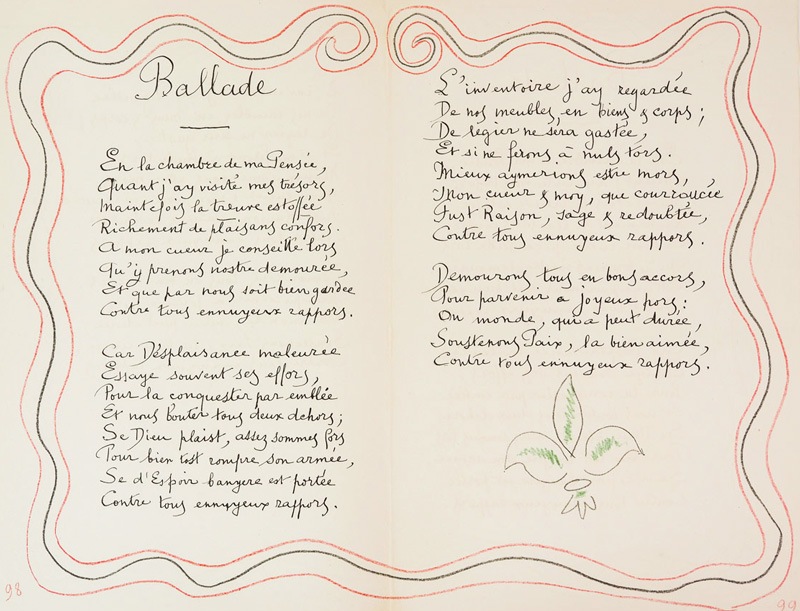 Ballade
En la chambre de ma Pensée,
Quant j'ay visité mes trésors,
Maintefois la treuve estoffée
Richement de plaisans confors.
A mon cueur je conseille lors
Qu'y prenons nostre demourée,
Et que par nous soit bien gardée
Contre tous ennuyeux rappors.
Car Désplaisance maleurée
Essaye souvent ses effors,
Pour la conquester par emblée
Et nous bouter tous deux dehors;
Se Dieu plaist, assez sommes fors
Pour bien tost rompre son armée,
Se d'Espoir banyere est portée
Contre tous ennuyeux rappors.
98
L'inventoire j'ay regardée
De nos meubles, en biens & corps;
De legier ne sera gastée,
Et si ne ferons à nuls tors.
Mieux aymerions estre mors,
Mon cueur & moy, que courroucée
Fust Raison, sage & redoubtée,
Contre tous ennuyeux rappors.
Demourons tous en bons accors,
Pour parvenir a joyeux pors:
Ou monde, qui a peut durée,
Soustenons Paix, la bien aimée,
Contre tous ennuyeux rappors.
99